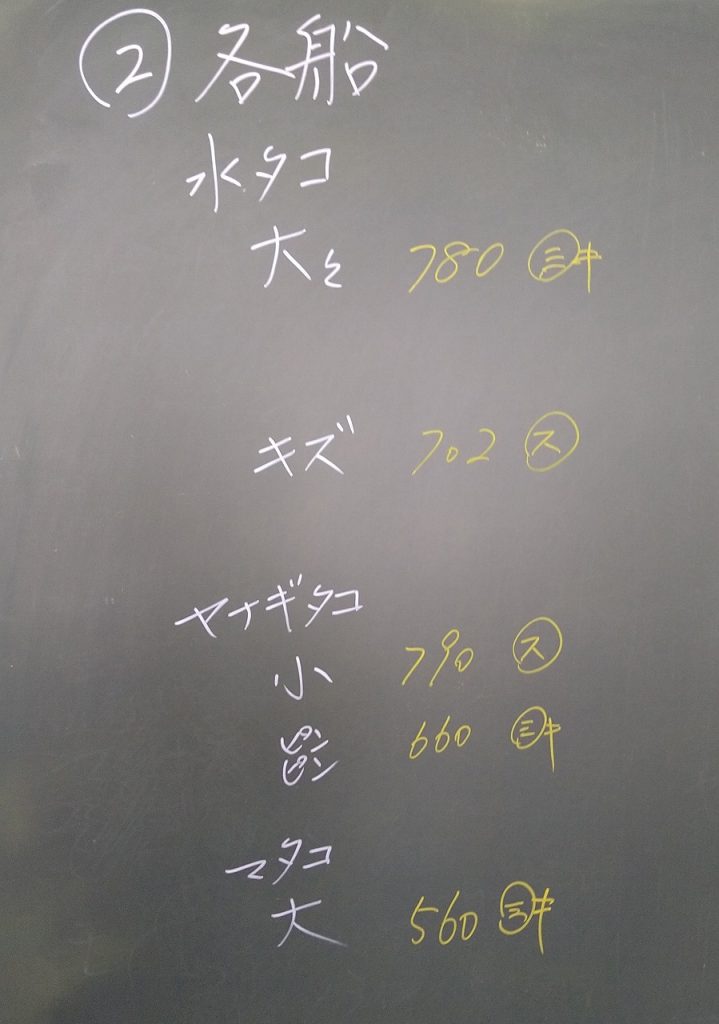 ② 各船
水タコ
大々 780 ㊂キ
キズ 702 ㋜
ヤナギタコ
小 790 ㋜
ピンピン 660 ㊂キ
マタコ
大 560 ㊂キ